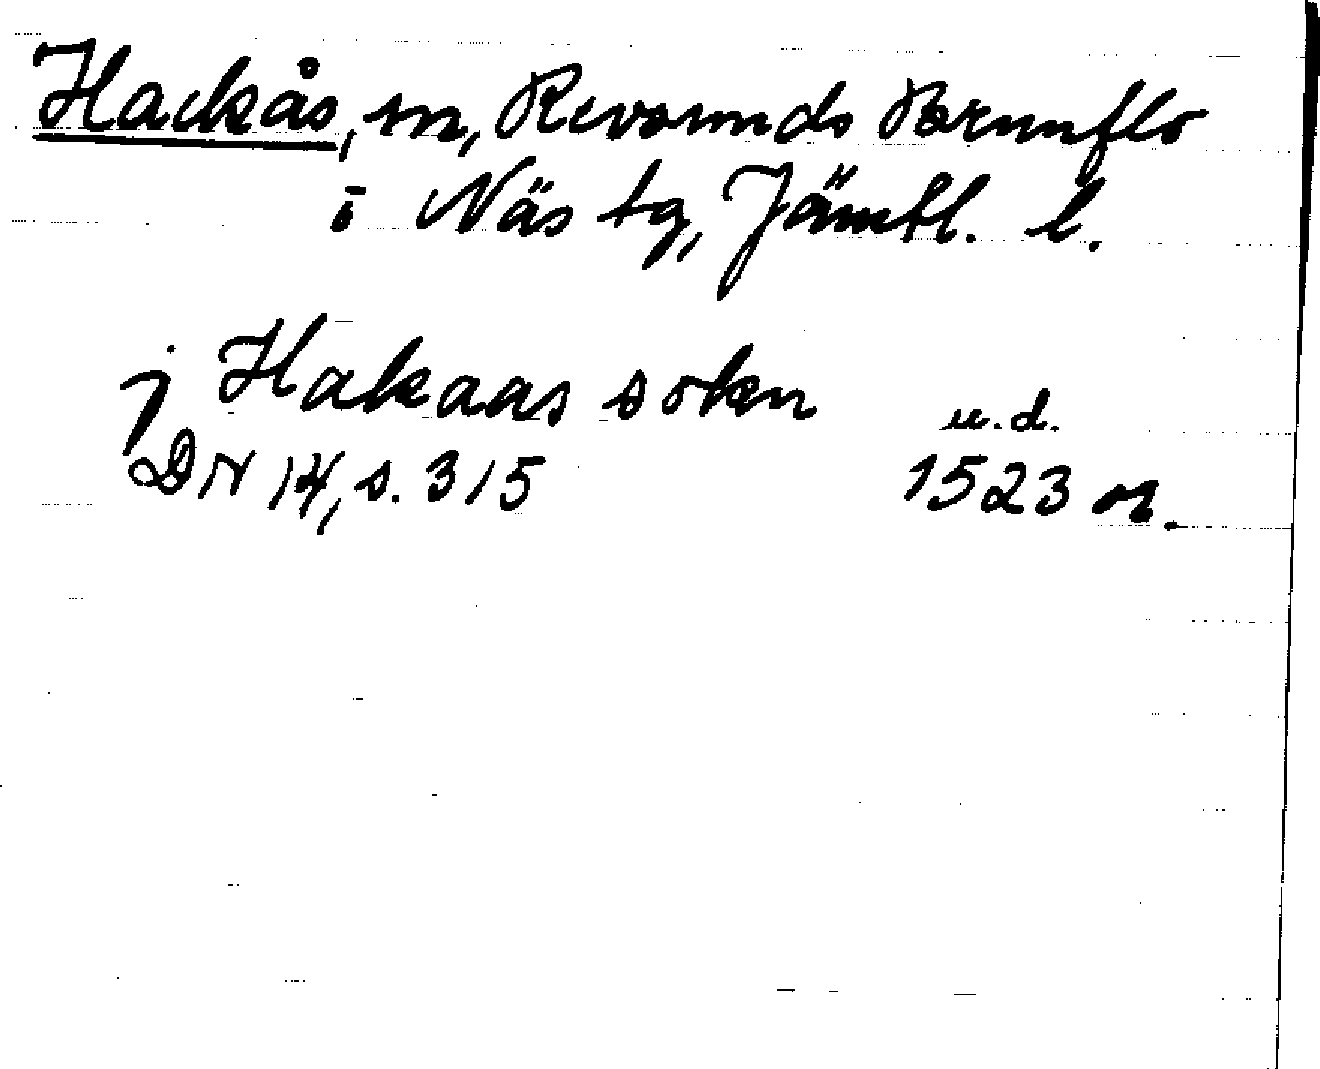 Hackås, sn, Revsunds Brunflo
i Näs tg, Jämtl. l.
j Hakaas sokn u.d.
DN 14, s. 315 1523 or.